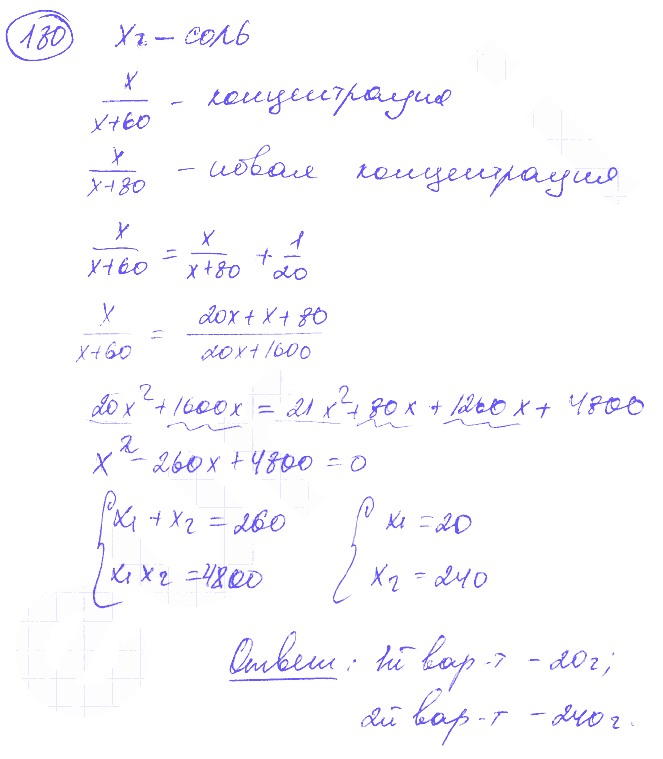 180 Xг – соль
x/(x+60) – концентрация
x/(x+80) – новая концентрация
x/(x+60) = x/(x+80) + 1/20
x/(x+60) = (20x+x+80)/(20x+1600)
20x²+1600x = 21x²+80x+1260x+4800
x²-260x+4800=0
{x₁+x₂=260 {x₁=20
x₁x₂=4800 x₂=240
Ответ: 1й вар-т – 20г;
2й вар-т – 240г.